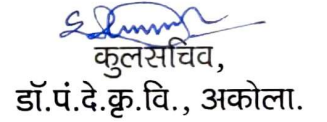 कुलसचिव,
डॉ.पं.दे.कृ.वि., अकोला.